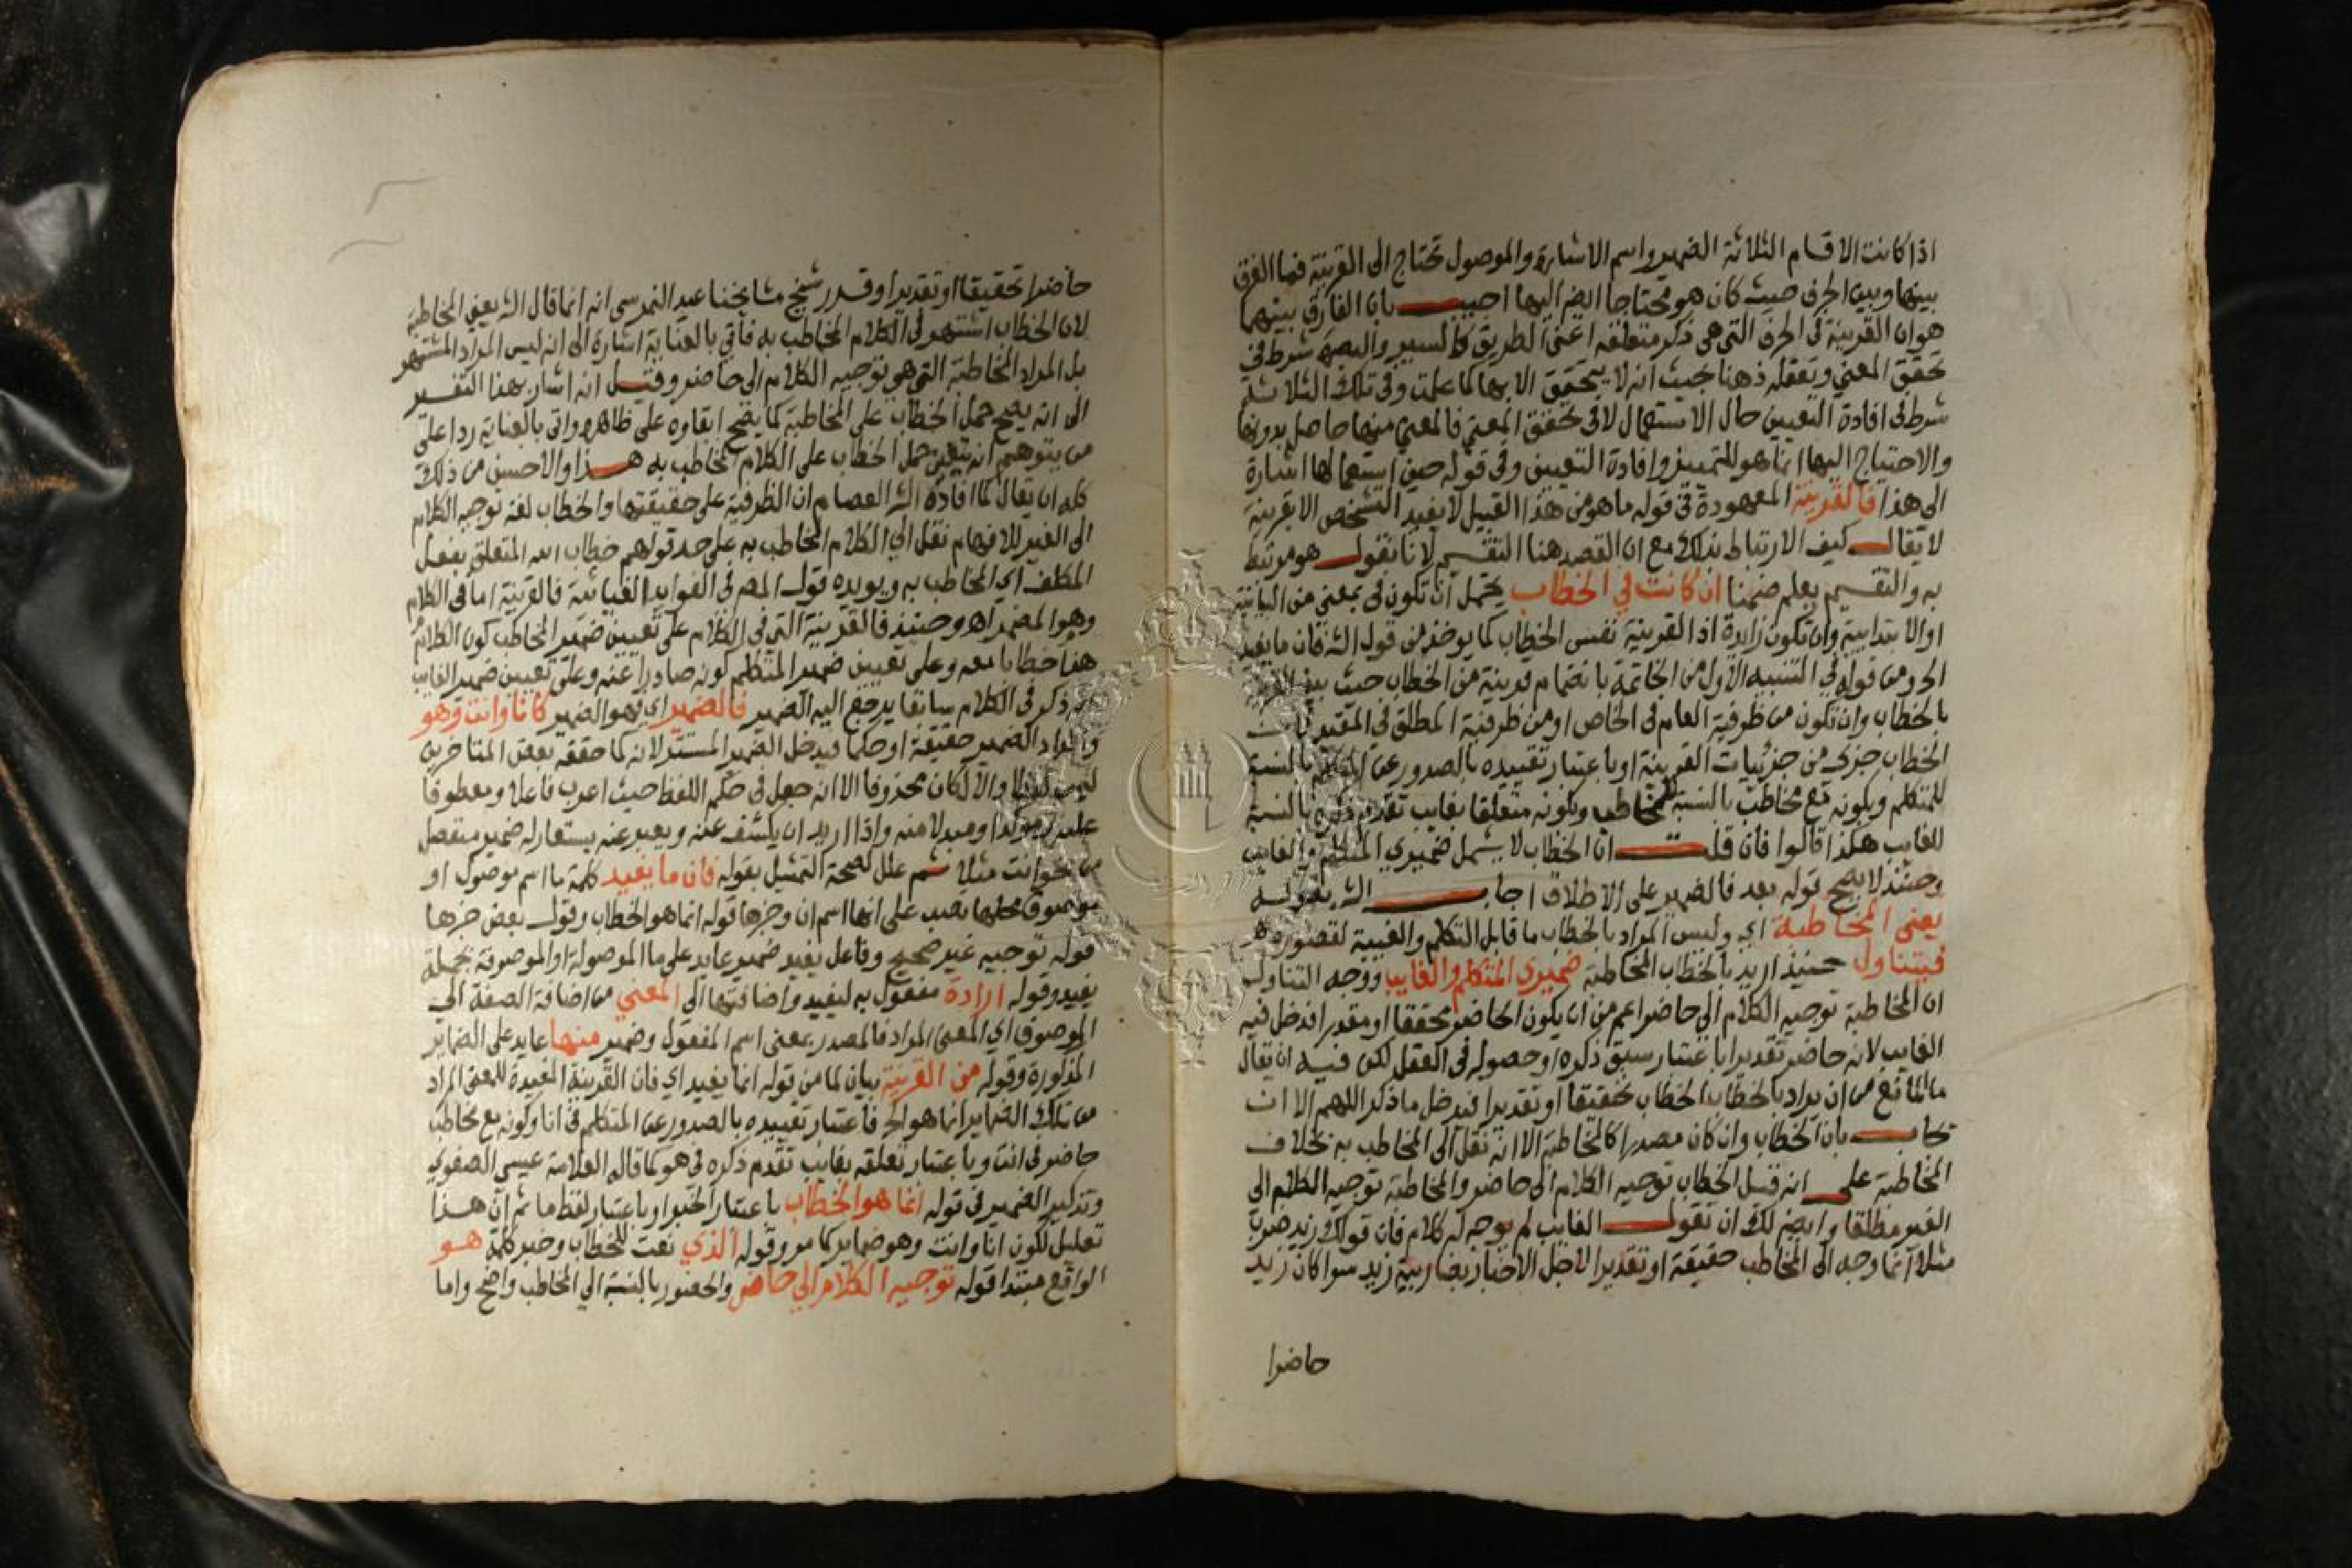 اذا كانت الاقسام الثلاثة الضمير واسم الاشارة والموصول تحتاج الى القرينة فما الفرق
بينها وبين الحرف حيث كان هو محتاجا ايضا اليها اجيب بان الفارق بينهما
هو ان القرينة في الحرف التي هي ذكر متعلقه اعنى الطريق كالسير والبصرة شرط في
تحقق المعني وتعقله ذهنا بحيث انه لا يتحقق الا بها كما علمت وفي تلك الثلاثة
شرط في افادة التعيين حال الاستعمال لا في تحقق المعنى فالمعنى منها حاصل بدونها
والاحتياج اليها انما هو للتمييز وافادة التعيين وفي قوله حين استعمالها اشارة
الى هذا فالقرينة المعهودة في قوله ما هو من هذا القبيل لا يفيد التشخص الا بقرينة
لا يقال كيف الارتباط بذلك مع ان القصد هنا التقسيم لانا نقول هو مرتبط
به والتقسيم يعلم ضمنا ان كانت في الخطاب يحتمل ان تكون في بمعني من البيانية
او الابتدايية وان تكون زايدة اذ القرينة نفس الخطاب كما يوخذ من قول الش فان ما يفيد
الخ ومن قوله في التنبيه الاول من الخاتمة بانضمام قرينة من الخطاب حيث بين القرينة
بالخطاب وان تكون من ظرفية العام في الخاص او من ظرفية المطلق في المقيد
الخطاب جزى من جزئيات القرينة او باعتبار تقييده بالصدور عن المتكلم بالنسبة
للمتكلم وبكونه مع مخاطب بالنسبة للمخاطب وبكونه متعلقا بغايب تقدم ذكره بالنسبة
للغايب هكذا قالوا فان قلت ان الخطاب لا يشمل ضميري المتكلم والغايب
وحينئذ لا يصح قوله بعد فالضمير على الاطلاق اجاب الش بقوله
يعني المخاطبة اي وليس المراد بالخطاب ما قابل التكلم والغيبة لقصوره
فيتناول حينئذ اريد بالخطاب المخاطبة ضميري المتكلم والغايب ووجه التناول
ان المخاطبة توجيه الكلام الى حاضر اعم من ان يكون الحاضر محققا او مقدرا فدخل فيه
الغايب لانه حاضر تقديرا باعتبار سبق ذكره او حصوله في العقل لكن فيه ان يقال
ما المانع من ان يراد بالخطاب الخطاب تحقيقا او تقديرا فيدخل ما ذكر اللهم الا ان
يجاب بان الخطاب وان كان مصدرا كالمخاطبة الا انه نقل الى المخاطب به بخلاف
المخاطبة على انه قيل الخطاب توجيه الكلام الى حاضر والمخاطبة توجيه الكلام الى
الغير مطلقا وايضا لك ان تقول الغايب لم يوجه له كلام فان قولك زيد ضرب
مثلا انما وجه الى المخاطب حقيقة او تقديرا لاجل الاخبار بضاربية زيد سوا كان زيد
حاضرا
حاضرا تحقيقا او تقديرا وقدر شيخ مشايخنا عبد النمرسى انه انما قال الش يعني المخاطبة
لان الخطاب اشتهر في الكلام المخاطب به فاتي بالعناية اشارة الى انه ليس المراد المشتهر
بل المراد المخاطبة التي هو توجيه الكلام الى حاضر وقيل انه اشار بهذا التفسير
الى انه يصح حمل الخطاب على المخاطبة كما يصح ابقاوه على ظاهره واتى بالعناية ردا على
من يتوهم انه يتعين حمل الخطاب على الكلام المخاطب به هذا والاحسن من ذلك
كله ان يقال كما افاده الش العصام ان الظرفية على حقيقتها والخطاب لغة توجيه الكلام
الى الغير للافهام نقل الى الكلام المخاطب به على حد قولهم خطاب الله المتعلق بفعل
المكلف اي المخاطب به ويويده قول المص في الفوايد الغياثية فالقرينة اما في الكلام
وهو المضمر اه وحينئذ فالقرينة التي في الكلام على تعيين ضمير المخاطب كون الكلام
هنا خطابا معه وعلى تعيين ضمير المتكلم كونه صادرا عنه وعلى تعيين ضمير الغايب
ذكر في الكلام سابقا يرجع اليه الضمير فالضمير اي فهو الضمير كانا وانت وهو
والمراد الضمير حقيقة او حكما فيدخل الضمير المستتر لانه كما حققه بعض المتاخرين
ليس لفظا والا لكان محذوفا الا انه جعل في حكم اللفظ حيث اعرب فاعلا ومعطوفا
عليه وموكدا ومبدلا منه واذا اريد ان يكشف عنه ويعبر عنه يستعار له ضمير منفصل
من نحو انت مثلا ثم علل لصحة التمثيل بقوله فان ما يفيد كلمة ما اسم موصول او
موصوف محلها نصب على انها اسم ان وخبرها قوله انما هو الخطاب وقول بعض خبرها
قوله توجيه غير صحيح وفاعل يفيد ضمير عايد على ما الموصولة او الموصوفة بجملة
يفيد وقوله ارادة مفعول به ليفيد واضافتها الى المعني من اضافة الصفة الى
الموصوف اي المعنى المراد فالمصدر بمعنى اسم المفعول وضمير منها عايد على الضماير
المذكورة وقوله من القرينة بيان لما من قوله انما يفيد اي فان القرينة المفيدة للمعنى المراد
من تلك الضماير انما هو الخ فاعتبار تقييده بالصدور عن المتكلم في انا وكونه مع مخاطب
حاضر في انت وباعتبار تعلقه بغايب تقدم ذكره في هو كما قاله العلامة عيسى الصفوي
وتذكير الضمير في قوله انما هو الخطاب باعتبار الخبر او باعتبار لفظ ما ثم ان هذا
تعليل لكون انا وانت وهو ضماير كما مر وقوله الذي نعت للخطاب وخبر كلمة هو
الواقع مبتدا قوله توجيه الكلام الى حاضر والحضور بالنسبة الى المخاطب واضح واما